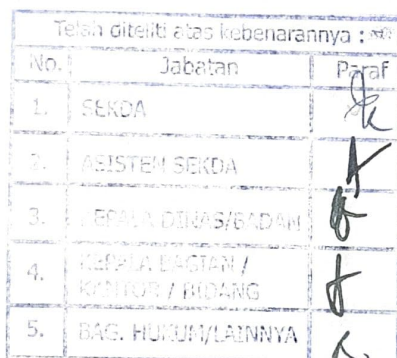 Telah diteliti atas kebenarannya :
No. Jabatan Paraf
1. SEKDA
2. ASISTEN SEKDA
3. KEPALA DINAS/BADAN
4. KEPALA BAGIAN /
KANTOR / BIDANG
5. BAG. HUKUM/LAINNYA